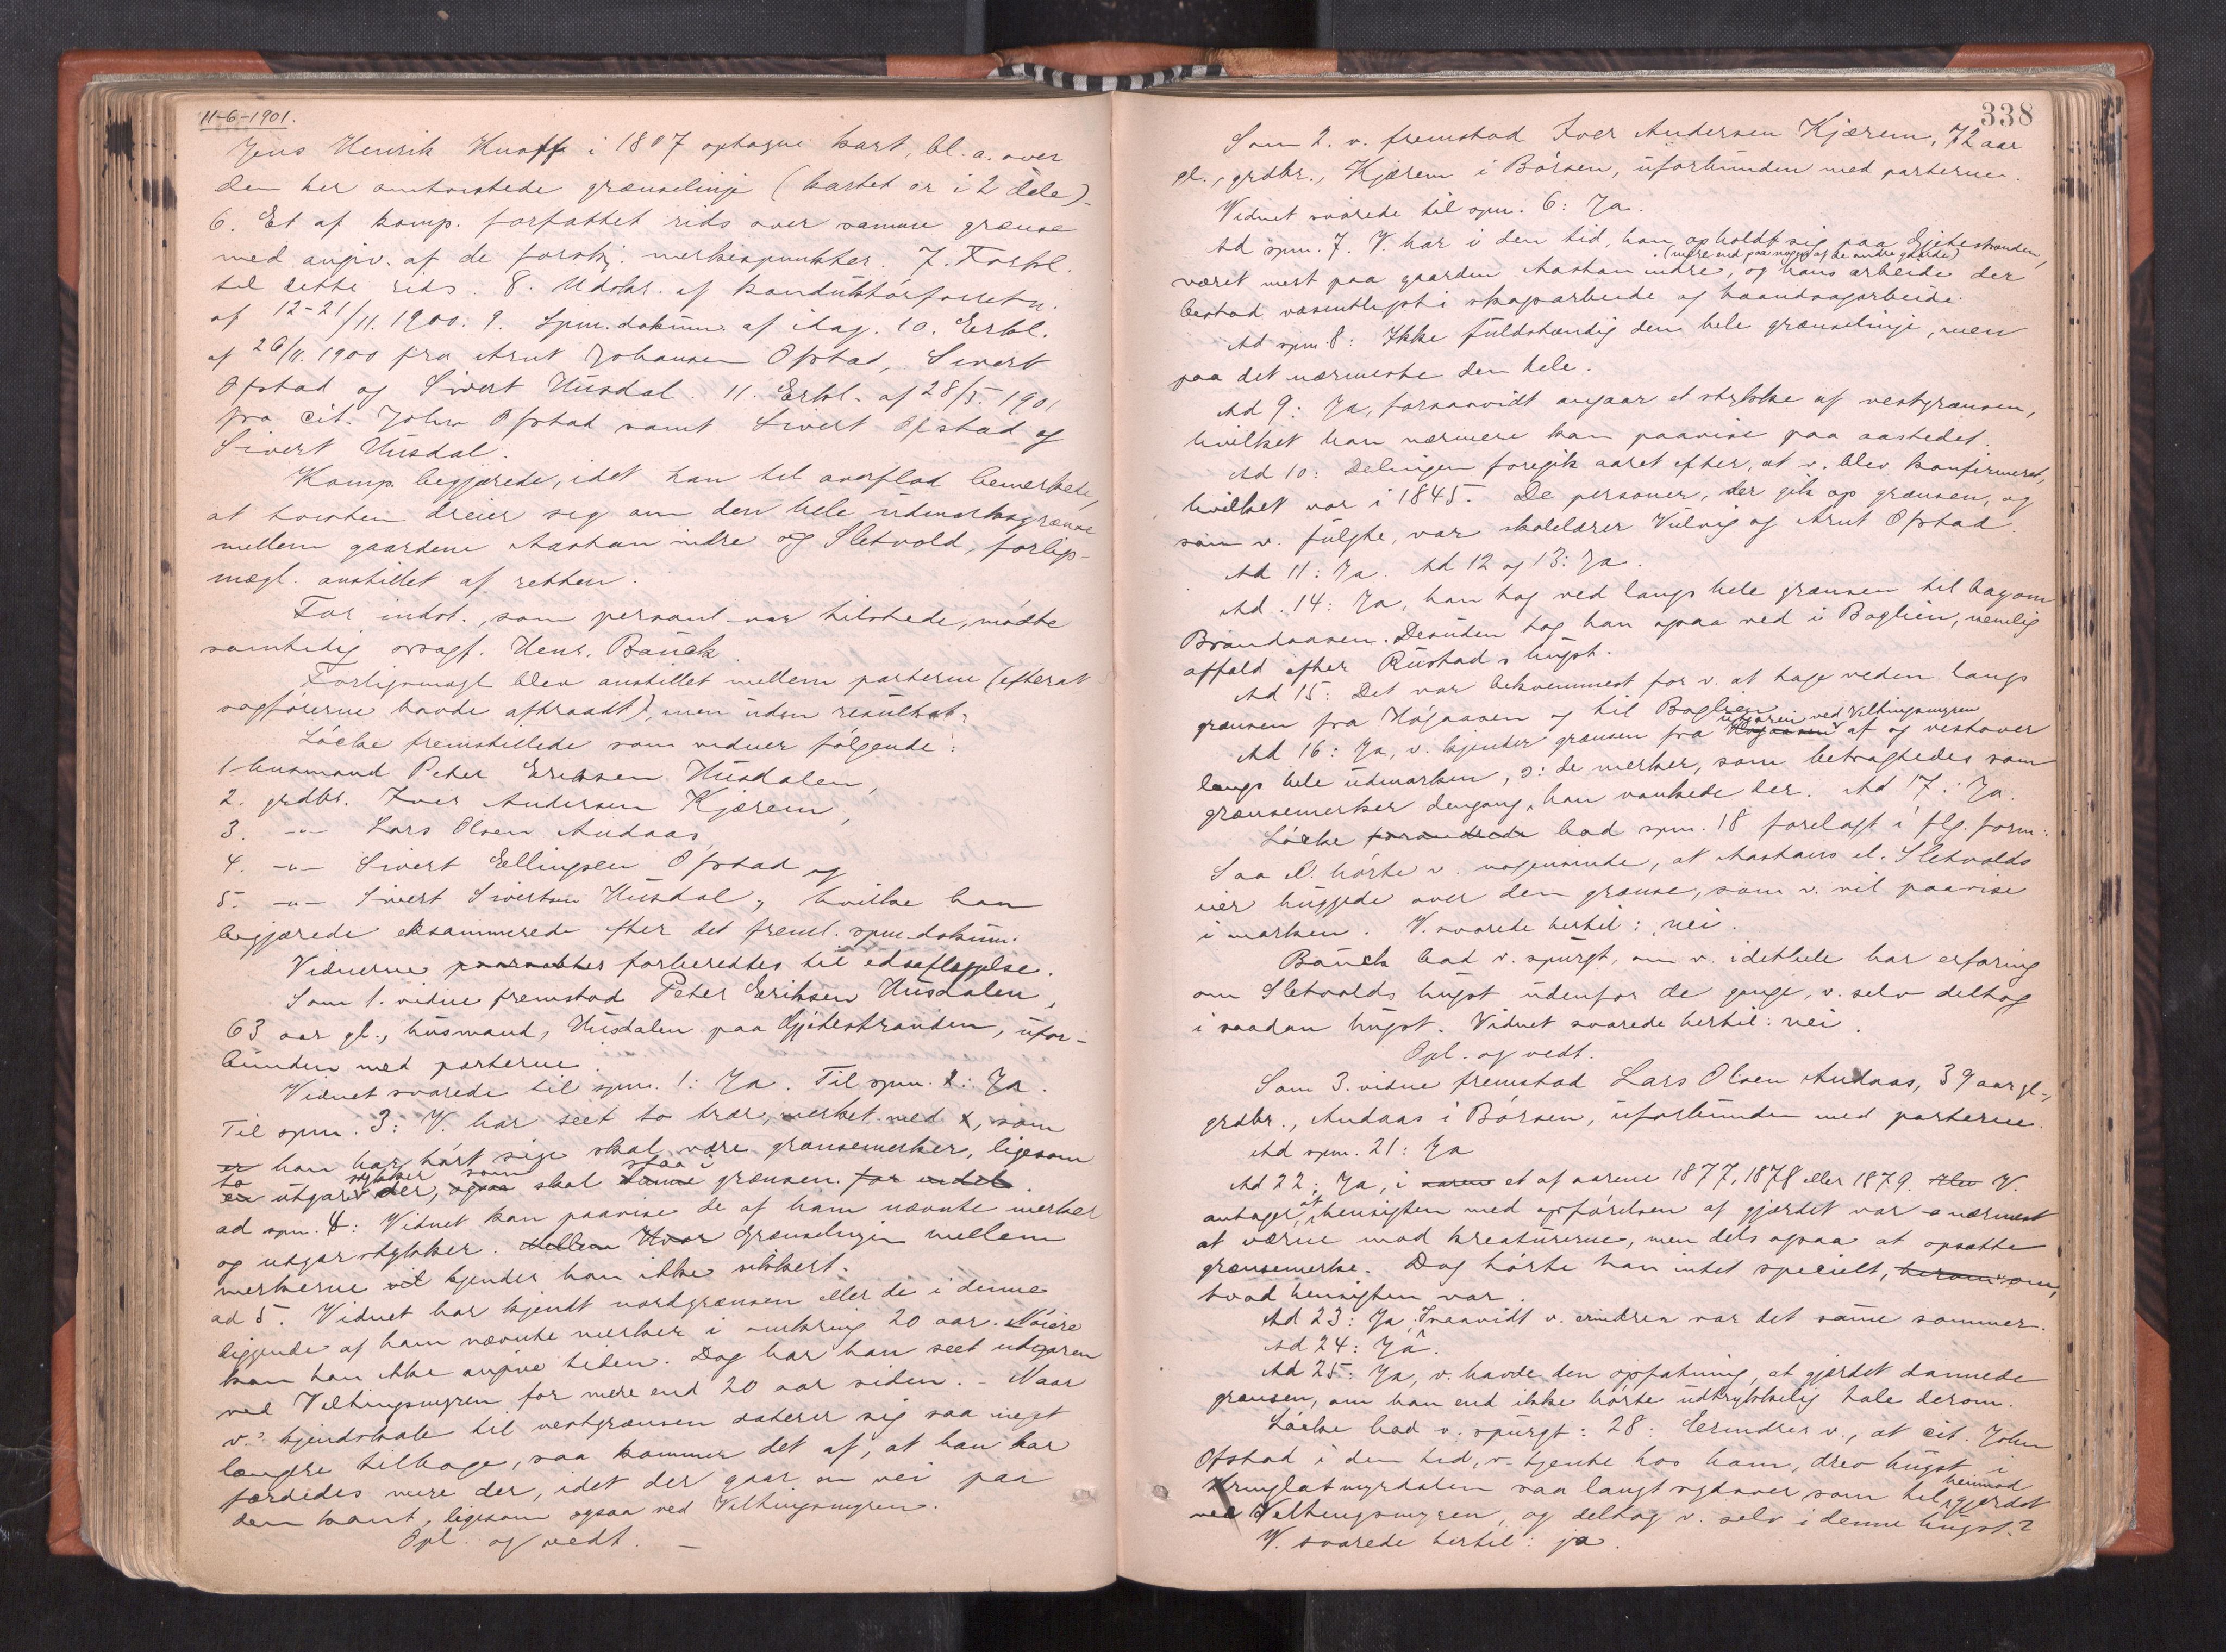 11-6-1901.
Jens Henrik Knoff i 1807 optagne kart, bl. a. over
den her omtvistede grænselinje (kartet er i 2 dele).
6. Et af komp. forfattet rids over samme grænse
med angiv. af de forskj. merkespunkter. 7. Forkl.
til dette rids. 8. Udskr. af konduktørforretn.
af 12-21/11. 1900. 9. Spm. dokum. af idag. 10. Erkl.
af 26/11. 1900 fra Arnt Johansen Ofstad, Sivert
Ofstad og Sivert Husdal. 11. Erkl. af 28/5. 1901
fra cit. John Ofstad samt Sivert Ofstad og
Sivert Husdal.
Komp. begjærede, idet han til overflod bemerkede,
at tvisten dreier sig om den hele udmarksgrænse
mellem gaardene Aastan indre og Sletvold, forligs-
mægl. anstillet af retten.
For indst., som personl. var tilstede, mødte
samtidig ovsagf. Henr. Bauck.
Forligsmægl. blev anstillet mellem parterne (efterat
sagførerne havde aftraadt), men uden resultat.
Løcke fremstillede som vidner følgende:
1. husmand Peter Eriksen Husdalen,
2. grdbr. Iver Andersen Kjærem,
3. -"- Lars Olsen Andaas,
4. -"- Sivert Ellingsen Ofstad og
5. -"- Sivert Sivertsen Husdal, hvilke han
begjærede eksaminerede efter det freml. spm. dokum.
Vidnerne paaraabtes forberedtes til edsaflæggelse.
Som 1. vidne fremstod Peter Eriksen Husdalen,
63 aar gl., husmand, Husdalen paa Gjeitestranden, ufor-
bunden med parterne.
Vidnet svarede til spm. 1: Ja. Til spm. 2: Ja.
Til spm. 3: V. har seet to trær, merket med x, som
er han har hørt sige skal være grænsemerker, ligesom
to stykker som staa i
en utgar der, ogsaa skal danne grænsen. for en del.
ad spm. 4: Vidnet kan paavise de af ham nævnte merker
og utgarstykker. Mellem Hvor Grænselinjen mellem
merkerne vil kjender han ikke sikkert.
ad 5. Vidnet har kjendt nordgrænsen eller de i denne
liggende af ham nævnte merker i omkring 20 aar. Nøiere
kan han ikke angive tiden. Dog har han seet utgaren
ved Veltingsmyren for mere end 20 aar siden. - Naar
v.s kjendskab til vestgrænsen daterer sig saa meget
længere tilbage, saa kommer det af, at han har
færdedes mere der, idet der gaar en vei paa
den kant, ligesom ogsaa ved Veltingsmyren.
Opl. og vedt. -
338
Som 2. v. fremstod Iver Andersen Kjærem, 72 aar
gl., grdbr., Kjærem i Børsen, uforbunden med parterne.
Vidnet svarede til spm. 6: Ja.
Ad spm. 7. V. har i den tid, han opholdt sig paa Gjeitestranden,
(mere end paa nogen af de andre gaarde)
været mest paa gaarden Aastan indre, og hans arbeide der
bestod væsentligst i skogarbeide og haandsagarbeide.
Ad spm. 8: Ikke fuldstændig den hele grænselinje, men
paa det nærmeste den hele.
Ad 9: Ja, forsaavidt angaar et stykke af vestgrænsen,
hvilket han nærmere kan paavise paa aastedet.
Ad 10: Delingen foregik aaret efter, at v. blev konfirmeret,
hvilket var i 1845. De personer, der gik op grænsen, og
som v. fulgte, var skolelærer Vulvig og Arnt Ofstad.
Ad 11: Ja. Ad 12 og 13: Ja.
Ad. 14: Ja, han tog ved langs hele grænsen til bagom
Brandaasen. Desuden tog han ogsaa ved i Boglien, nemlig
affald efter Rustads hugst.
Ad 15: Det var bekvemmest for v. at tage veden langs
grænsen fra Høgaasen og til Boglien.
utgaren ved Veltingsmyren
Ad 16: Ja, v. kjender grænsen fra Høgaasen af og vestover
langs hele udmarken, ɔ: de merker, som betragtedes som
grænsemerker dengang han vankede der. Ad 17: Ja.
Løcke forandrede bad spm. 18 forelagt i flg. form:
Saa el. hørte v. nogensinde, at Aastans el. Sletvolds
eier huggede over den grænse, som v. vil paavise
i marken. V. svarede hertil: nei.
Bauck bad v. spurgt, om v. idethele har erfaring
om Sletvolds hugst udenfor de gange, v. selv deltog
i saadan hugst. Vidnet svarede hertil: nei.
Opl. og vedt.
Som 3. vidne fremstod Lars Olsen Andaas, 39 aar gl.,
grdbr., Andaas i Børsen, uforbunden med parterne.
Ad spm. 21: Ja
Ad 22: Ja, i aaren et af aarene 1877, 1878 eller 1879. V.
antager, at hensigten med opførelsen af gjærdet var nærmest
at værne mod kreaturerne, men dels ogsaa at opsætte
grænsemerke. Dog hørte han intet specielt, herom om,
hvad hensigten var.
Ad 23: Ja, Isaavidt v. erindrer var det samme sommer.
Ad 24: Ja.
Ad 25: Ja, v. havde den opfatning, at gjærdet dannede
grænsen, om han end ikke hørte udtrykkelig tale derom.
Løcke bad v. spurgt: 28: Erindrer v., at cit. John
Ofstad i den tid, v. tjente hos ham, drev hugst i
Kringlatmyrdalen saa langt sydover som til henimod gjærdet
ved Veltingsmyren, og deltog v. selv i denne hugst?
V. svarede hertil: ja.